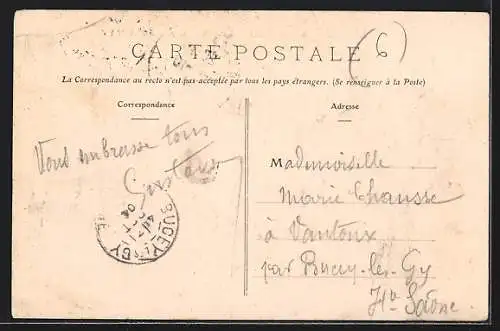 CARTE POSTALE
(6)
La Correspondance au recto n'est pas acceptée par tous les pays étrangers. (Se renseigner à la Poste)
Correspondance
Vous embrasse tous
Gustave
BUCEY-LES-GY
04
Adresse
Mademoiselle
Marie Chausse
à Vantoux
par Bucey-les-Gy
Hte Saône